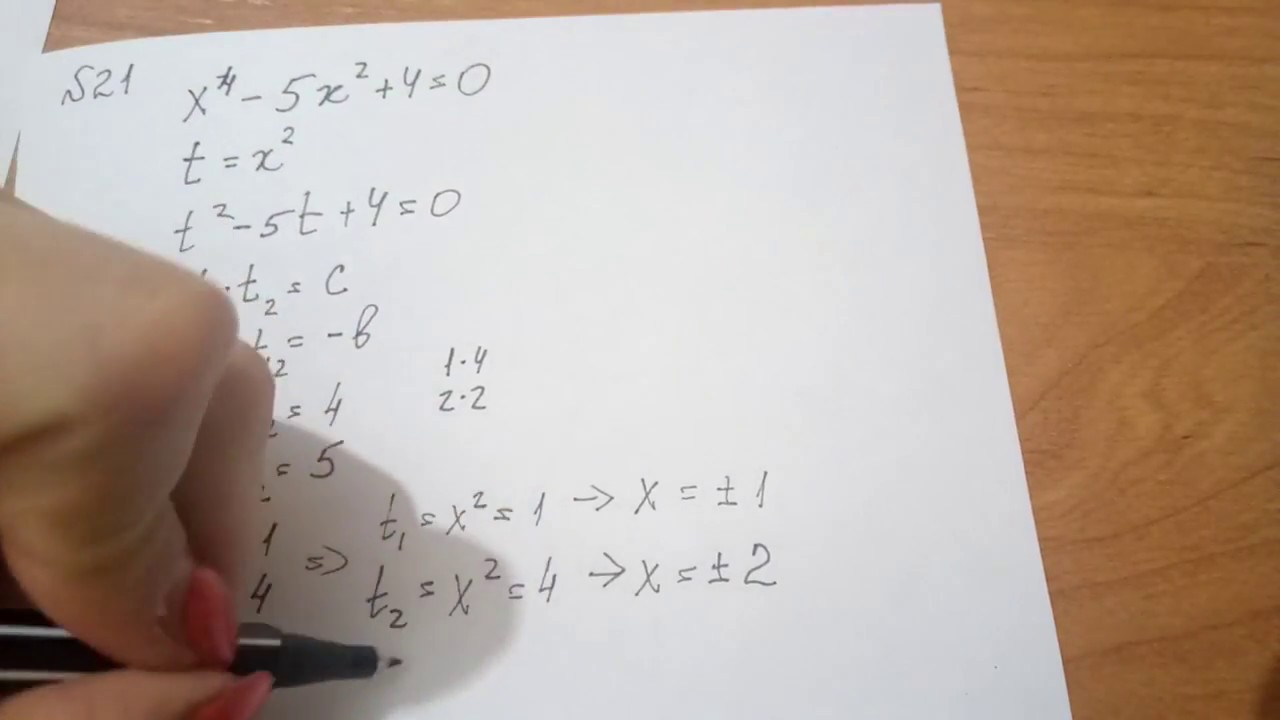 №21 x⁴ - 5x² + 4 = 0
t = x²
t² - 5t + 4 = 0
· t₂ = c
= -b
1·4
2·2
= 4
= 5
1
4
=>
t₁ = x² = 1 → x = ±1
t₂ = x² = 4 → x = ±2